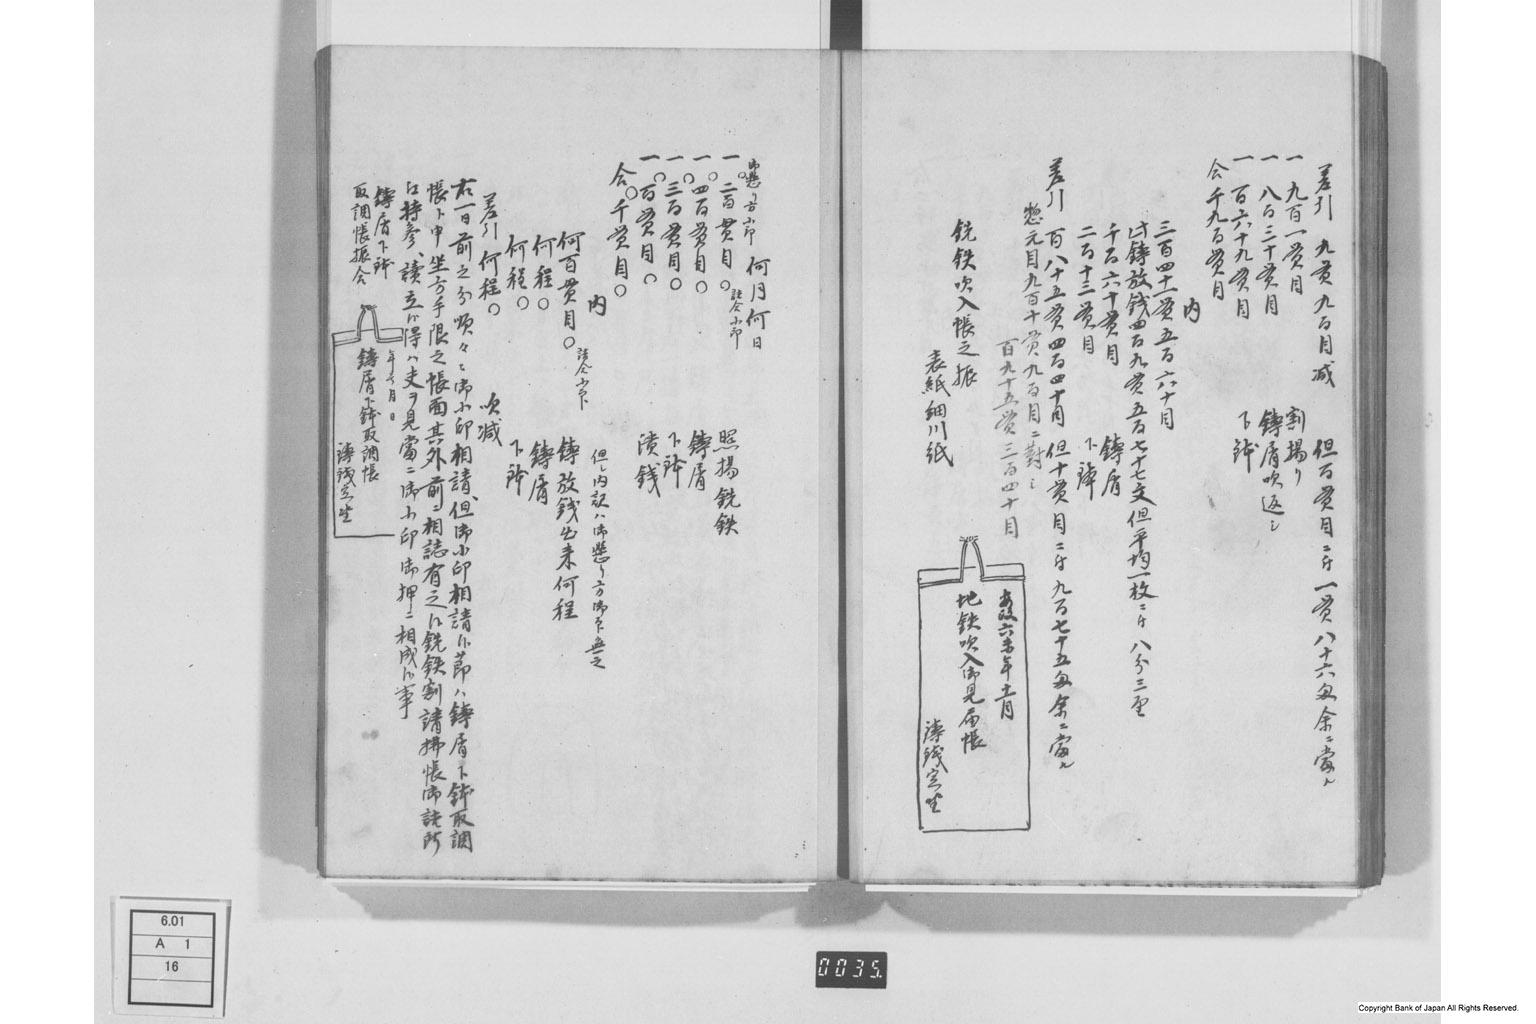 差引 九貫九百目減 但百貫目ニ付一貫八十六匁余ニ當ル
一 九百一貫目 割場ゟ
一 八百三十貫目 鋳屑吹返シ
一 百六十九貫目 下鉢
合千九百貫目
内
三百四十一貫五百六十目
此鋳放銭四百九貫五百七十七文但平均一枚ニ付八分三厘
千百六十貫目 鋳屑
二百十三貫目 下鉢
差引 百八十五貫四百四十目 但十貫目ニ付九百七十五匁余ニ當ル
惣元目九百十貫九百目ニ對シ
百九十五貫三百四十目
銑鉄吹入帳之振 表紙細川紙
安政六未年十一月
地鉄吹入御見届帳
鋳銭定座
御懸り方小印 何月何日
一 二百貫目 詰合小印 照揚銑鉄
一 四百貫目 鋳屑
一 三百貫目 下鉢
一 百貫目 潰銭
合千貫目
内
何百貫目 詰合小印 鋳放銭出来何程
但シ内訳ハ御懸り方御印無之
何程 鋳屑
何程 下鉢
差引何程 吹減
右一日前之分順々ニ御小印相請、但御小印相請候節ハ鋳屑下鉢取調
帳ト申坐方手限之帳面其外前ニ相誌有之候銑鉄割請拂帳御詰所
江持参、讀立候得ハ夫々見當ニ御小印御押ニ相成候事
鋳屑下鉢
取調帳振合
年号月日
鋳屑下鉢取調帳
鋳銭定座
6.01
A 1
16
0035
Copyright Bank of Japan All Rights Reserved.